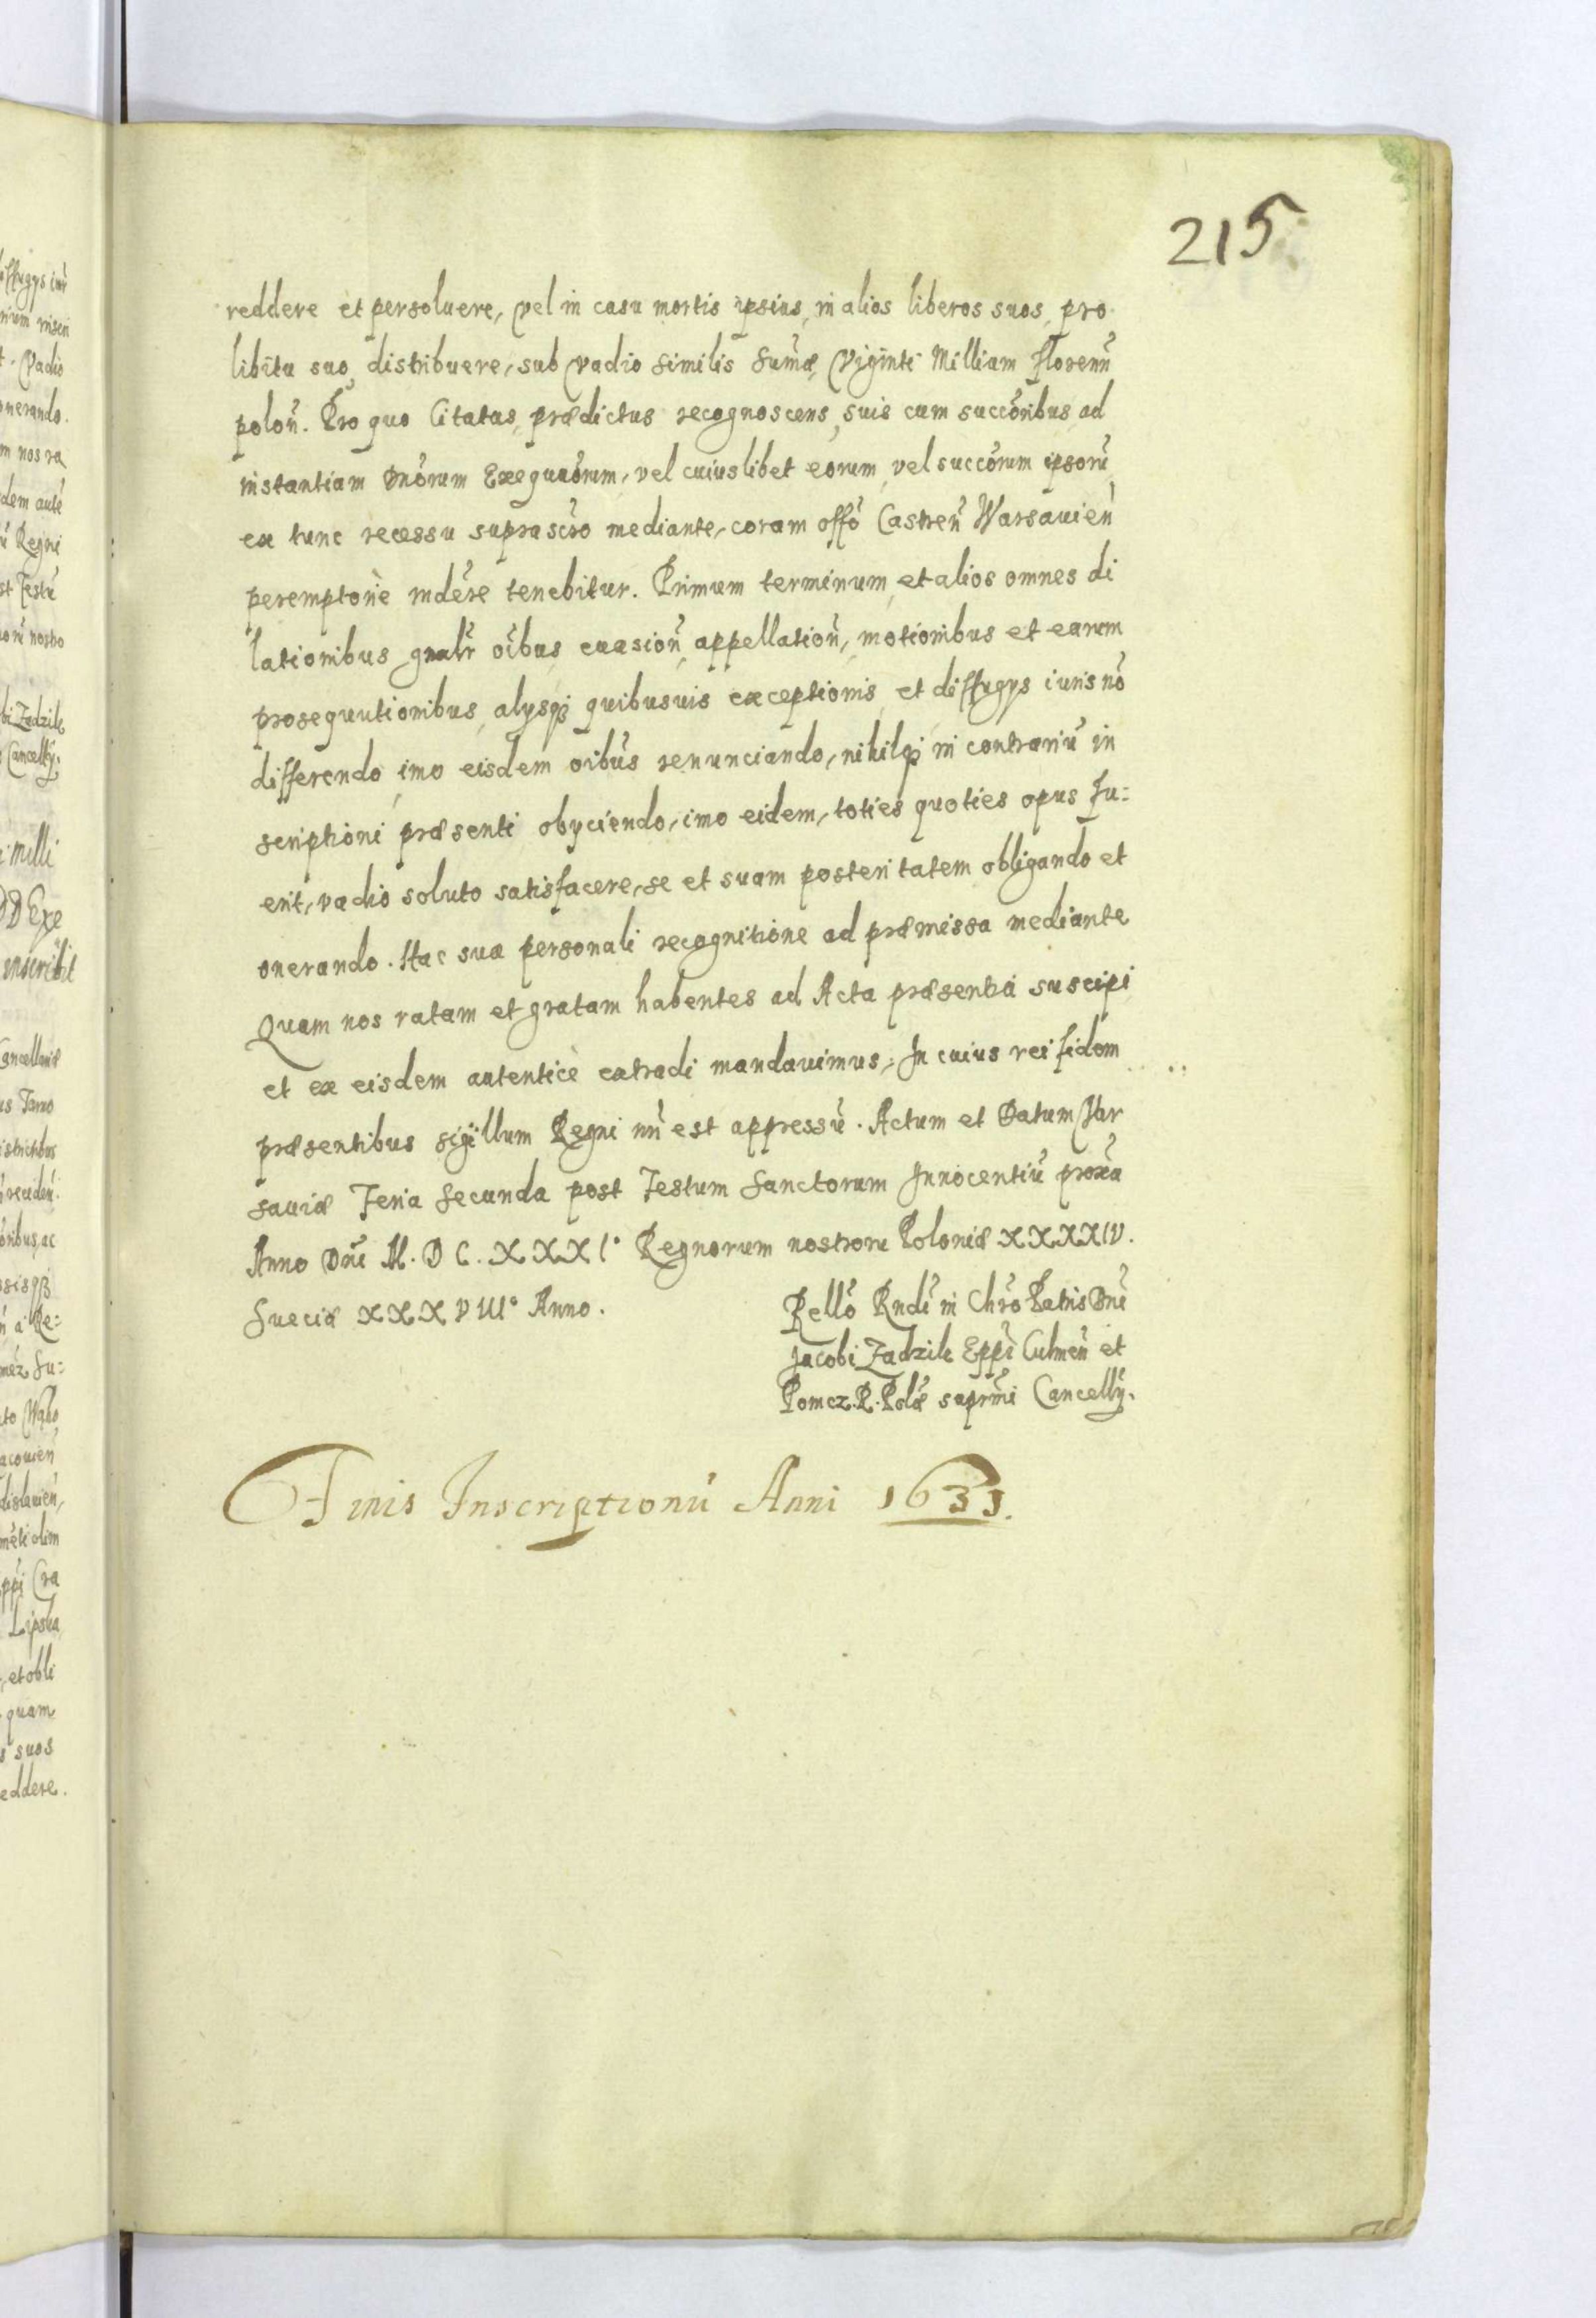 215
reddere et persoluere, vel in casu mortis ipsius, in alios liberos suos, pro
libitu suo, distribuere, sub vadio similis Sum̃æ, Viginti Milliam florenũ
polon̄. Pro quo Citatus, prædictus recognoscens, suis cum succõribus, ad
instantiam Dnõrum Exequuõrum, vel cuiuslibet eorum, vel succõrum ipsorũ,
ex tunc recessu suprascr̃o mediante, coram offõ Castren̄ Warsauien̄
peremptoriè rndẽre tenebitur. Primum terminum, et alios omnes di
lationibus gnalr̃ oĩbus, euasion̄, appellation̄, motionibus et earum
prosequutionibus, alysq; quibusuis exceptionis, et diffugys iuris nõ
differendo, imo eisdem oĩbus renunciando, nihilq; in contrariũ in
scriptioni præsenti obyciendo, imo eidem, toties quoties opus fu=
erit, vadio soluto satisfacere, se et suam posteritatem obligando et
onerando. Hac sua personali recognitione ad præmissa mediante
Quam nos ratam et gratam habentes ad Acta præsentia suscipi
et ex eisdem autenticè extradi mandauimus, In cuius rei fidem
præsentibus sigillum Regni nr̃i est appressũ. Actum et Datum Var
sauiæ Feria Secunda post Festum Sanctorum Innocentiũ proxã
Anno Dñi M. D C. XXXI° Regnorum nostrorũ Poloniæ XXXXIV.
Sueciæ XXXVIII° Anno.
Rellõ Rndĩ in Chrõ Patris Dñi
Jacobi Zadzik Eppĩ Culmen̄ et
Pomez. R. Polæ̃ suprmĩ Cancellỹ.
Finis Inscriptionũ Anni 1631.